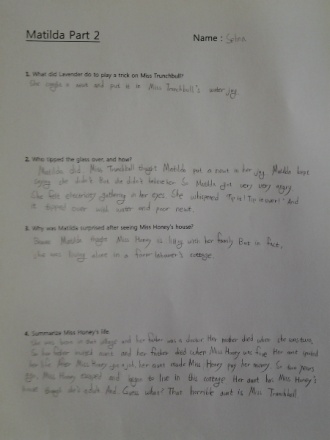 Matilda Part 2
Name :
1. What did Lavender do to play a trick on Miss Trunchbull?
She a newt and put it in Miss Trunchbull's water jug.
2. Who tipped the glass over, and how?
Matilda did. Miss Trunchbull Matilda put a newt in her jug. Matilda
she didn't But she didn't So Matilda got very very angry.
She felt electricity gathering in her eyes. She whispered "Tip it! Tip it over!" And
it tipped over with water and poor newt.
3. Why was Matilda surprised after seeing Miss Honey's house?
Matilda Miss Honey is with her family But in fact,
she was living alone on a farm laborer's cottage.
4. Summarize Miss Honey's life.
She was born in this village and her father was a doctor. Her mother died when she was
So her father aunt and her father died when Miss Honey was five. Her aunt
her After Miss Honey got a job, her aunt made Miss Honey pay her money. So two years
ago, Miss Honey and began to live in this cottage. Her aunt Miss Honey's
house And, Guess what? That terrible aunt is Miss Trunchbull